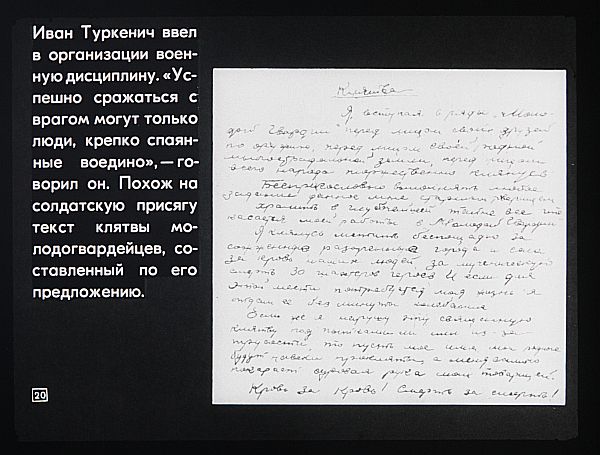 Иван Туркенич ввел
в организации воен-
ную дисциплину. «Ус-
пешно сражаться с
врагом могут только
люди, крепко спаян-
ные воедино»,—го-
ворил он. Похож на
солдатскую присягу
текст клятвы мо-
лодогвардейцев, со-
ставленный по его
предложению.
20
Клятва
Я вступая в ряды „Моло-
дой Гвардии" перед лицом своих друзей
по оружию, перед лицом своей родной
многострадальной земли, перед лицом
всего народа торжественно клянусь
Беспрекословно выполнять любое
задание данное мне старшим товарищем
хранить в глубочайшей тайне все что
касается моей работы в „Молодой Гвардии"
Я клянусь мстить беспощадно за
сожженные разоренные города и села
за кровь наших людей за мученическую
смерть 30 шахтеров героев И если для
этой мести потребуется моя жизнь я
отдам ее без минуты колебания
Если же я нарушу эту священную
клятву под пытками или из-за
трусости то пусть мое имя мои родные
будут навеки прокляты, а меня самого
покарает суровая рука моих товарищей.
Кровь за Кровь! Смерть за смерть!